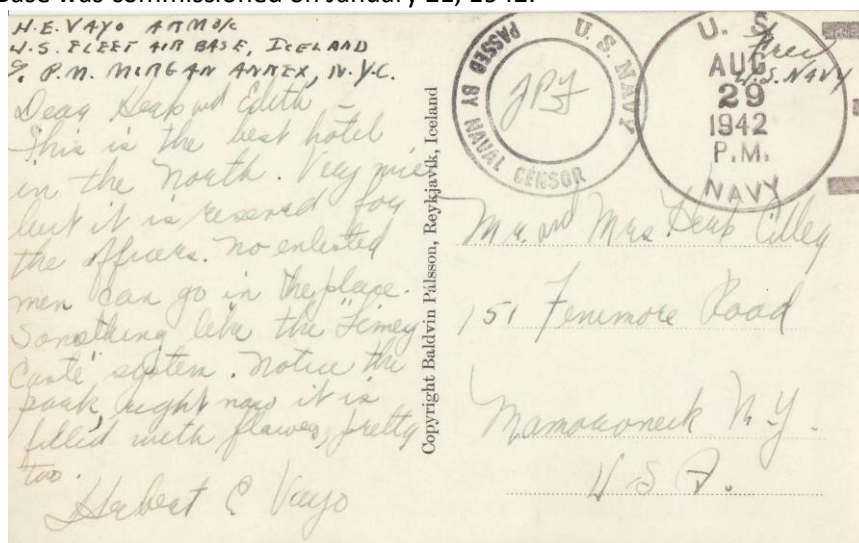 Base was commissioned on January 21, 1942.
H.E. VAYO ARM3/c
U.S. FLEET AIR BASE, ICELAND
℅ P.M. MORGAN ANNEX, N.Y.C.
Dear Herb and Edith –
This is the best hotel
in the North. Very nice
but it is reserved for
the officers. No enlisted
men can go in the place.
Something like the "Limey
Caste" system. Notice the
park, right now it is
filled with flowers, pretty
too.
Herbert E Vayo
Copyright Baldvin Pálsson, Reykjavík, Iceland
PASSED BY NAVAL CENSOR
U.S. NAVY
JPF
U.S.
AUG
29
1942
P.M.
NAVY
Free
U.S. NAVY
Mr. and Mrs Herb Cilley
151 Fenimore Road
Mamoroneck N.Y.
U S A.